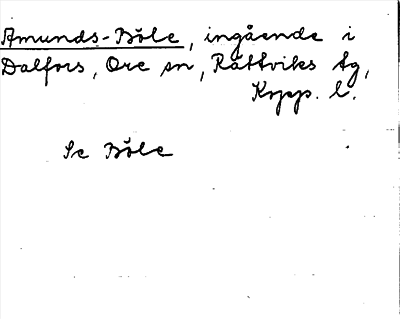 Amunds-Böle, ingående i
Dalfors, Ore sn, Rättviks tg,
Kopp. l.
Se Böle